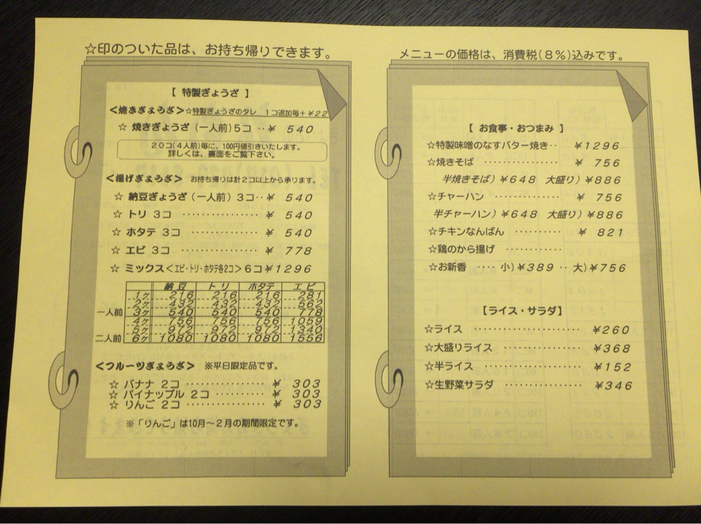 ☆印のついた品は、お持ち帰りできます。
【 特製ぎょうざ 】
＜焼きぎょうざ＞☆特製ぎょうざのタレ 1コ追加毎+¥22
☆ 焼きぎょうざ (一人前) 5コ ‥ ¥ 540
20コ(4人前)毎に、100円値引きいたします。
詳しくは、裏面をご覧下さい。
＜揚げぎょうざ＞ お持ち帰りは計2コ以上から承ります。
☆ 納豆ぎょうざ (一人前) 3コ ‥ ¥ 540
☆ トリ 3コ ‥‥‥‥‥‥‥ ¥ 540
☆ ホタテ 3コ ‥‥‥‥‥‥ ¥ 540
☆ エビ 3コ ‥‥‥‥‥‥‥ ¥ 778
☆ ミックス＜エビ・トリ・ホタテ各2コ＞6コ¥1296
納豆 トリ ホタテ エビ
1ケ 216 216 216 281
2ケ 432 432 432 562
一人前 3ケ 540 540 540 778
4ケ 756 756 756 1059
5ケ 972 972 972 1340
二人前 6ケ 1080 1080 1080 1556
＜フルーツぎょうざ＞ ※平日限定品です。
☆ バナナ 2コ ‥‥‥‥‥‥ ¥ 303
☆ パイナップル 2コ ‥‥‥‥ ¥ 303
☆ りんご 2コ ‥‥‥‥‥‥ ¥ 303
※「りんご」は10月～2月の期間限定です。
メニューの価格は、消費税(8%)込みです。
【 お食事・おつまみ 】
☆特製味噌のなすバター焼き‥ ¥1296
☆焼きそば ‥‥‥‥‥‥‥ ¥ 756
半焼きそば)¥648 大盛り)¥886
☆チャーハン ‥‥‥‥‥‥ ¥ 756
半チャーハン)¥648 大盛り)¥886
☆チキンなんばん ‥‥‥‥ ¥ 821
☆鶏のから揚げ ‥‥‥‥
☆お新香 ‥‥ 小)¥389 ‥ 大)¥756
【ライス・サラダ】
☆ライス ‥‥‥‥‥‥‥‥ ¥260
☆大盛りライス ‥‥‥‥‥ ¥368
☆半ライス ‥‥‥‥‥‥‥ ¥152
☆生野菜サラダ ‥‥‥‥‥ ¥346